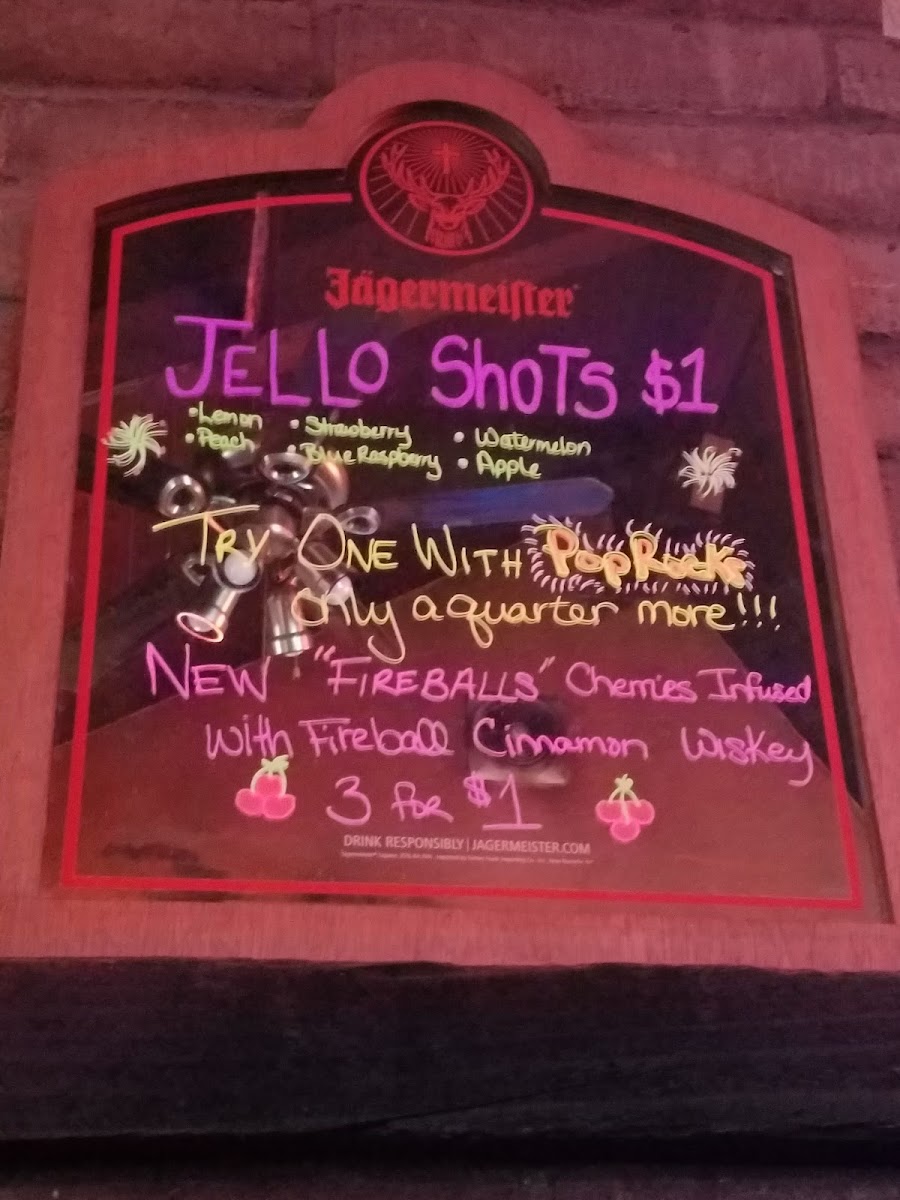 Jägermeister
JELLO SHOTS $1
•Lemon •Strawberry •Watermelon
•Peach •Blue Raspberry •Apple
TRY ONE WITH PopRocks
only a quarter more!!!
NEW "FIREBALLS" Cherries Infused
With Fireball Cinnamon Wiskey
3 for $1
DRINK RESPONSIBLY | JAGERMEISTER.COM